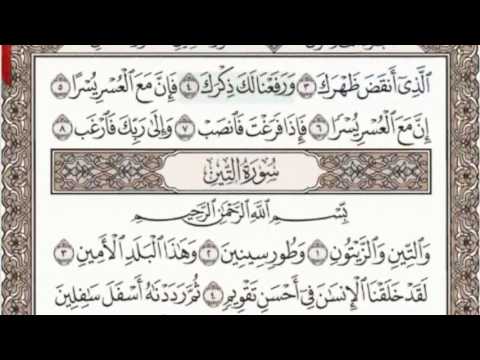 ٱلَّذِىٓ أَنقَضَ ظَهْرَكَ ٣ وَرَفَعْنَا لَكَ ذِكْرَكَ ٤ فَإِنَّ مَعَ ٱلْعُسْرِ يُسْرًا ٥
إِنَّ مَعَ ٱلْعُسْرِ يُسْرًا ٦ فَإِذَا فَرَغْتَ فَٱنصَبْ ٧ وَإِلَىٰ رَبِّكَ فَٱرْغَب ٨
سُورَةُ ٱلتِّينِ
بِسْمِ ٱللَّهِ ٱلرَّحْمَٰنِ ٱلرَّحِيمِ
وَٱلتِّينِ وَٱلزَّيْتُونِ ١ وَطُورِ سِينِينَ ٢ وَهَٰذَا ٱلْبَلَدِ ٱلْأَمِينِ ٣
لَقَدْ خَلَقْنَا ٱلْإِنسَٰنَ فِىٓ أَحْسَنِ تَقْوِيمٍ ٤ ثُمَّ رَدَدْنَٰهُ أَسْفَلَ سَٰفِلِينَ